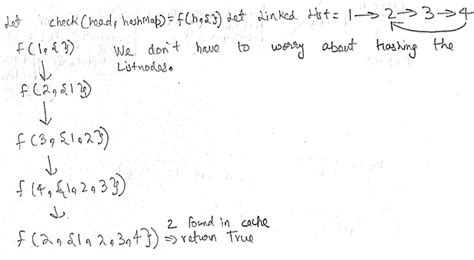 Let check(head, hashmap) = f(h,{}) Let Linked List = 1 → 2 → 3 → 4
f(1,{}) We don't have to worry about hashing the
Listnodes.
f(2,{1})
f(3,{1,2})
f(4,{1,2,3})
2 found in cache
f(2,{1,2,3,4}) ⇒ return True